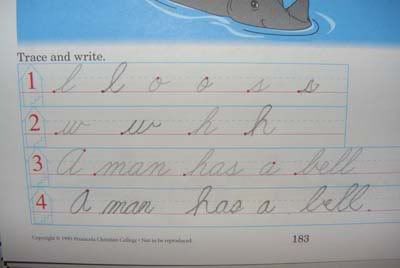 Trace and write.
1 l l o o s s
2 w w h h
3 A man has a bell
4 A man has a bell.
Copyright © 1995 Pensacola Christian College • Not to be reproduced. 183